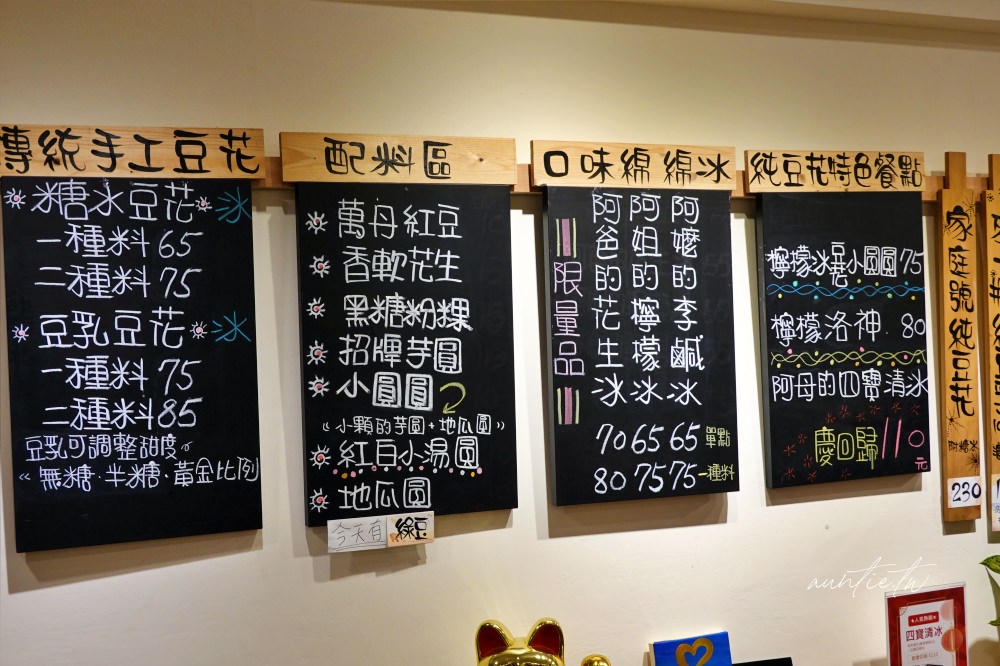 傳統手工豆花
糖水豆花 冰
一種料65
二種料75
豆乳豆花 冰
一種料75
二種料85
豆乳可調整甜度
無糖·半糖·黃金比例
配料區
萬丹紅豆
香軟花生
黑糖粉粿
招牌芋圓
小圓圓
小顆的芋圓+地瓜圓
紅白小湯圓
地瓜圓
今天有 綠豆
口味綿綿冰
限量品
阿爸的花生冰
阿姐的檸檬冰
阿嬤的李鹹冰
70 65 65 單點
80 75 75 一種料
純豆花特色餐點
檸檬冰豆花小圓圓75
檸檬洛神·80
阿母的四寶清冰
慶回歸110元
家庭號純豆花
附糖水
230
auntie.tw
四寶清冰